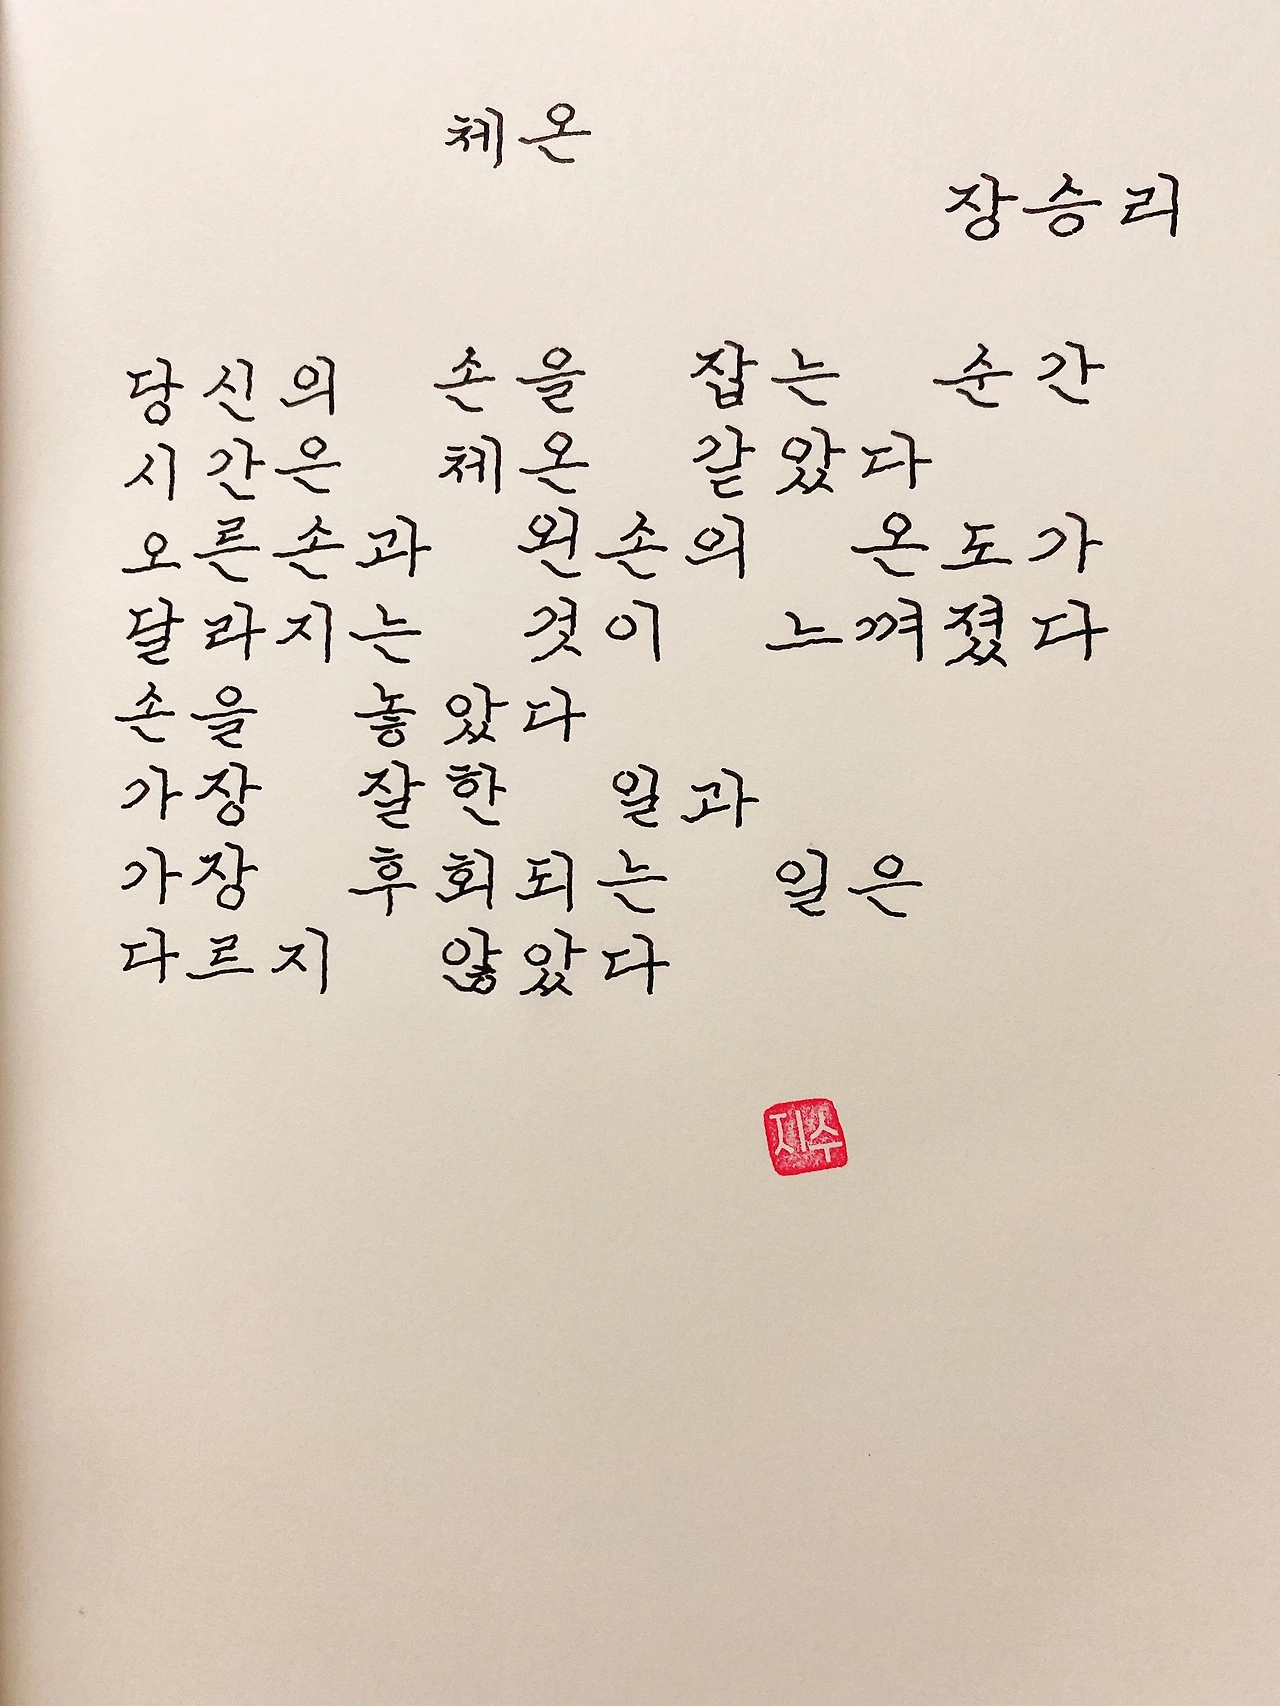 체온
장승리
당신의 손을 잡는 순간
시간은 체온 같았다
오른손과 왼손의 온도가
달라지는 것이 느껴졌다
손을 놓았다
가장 잘한 일과
가장 후회되는 일은
다르지 않았다
지수